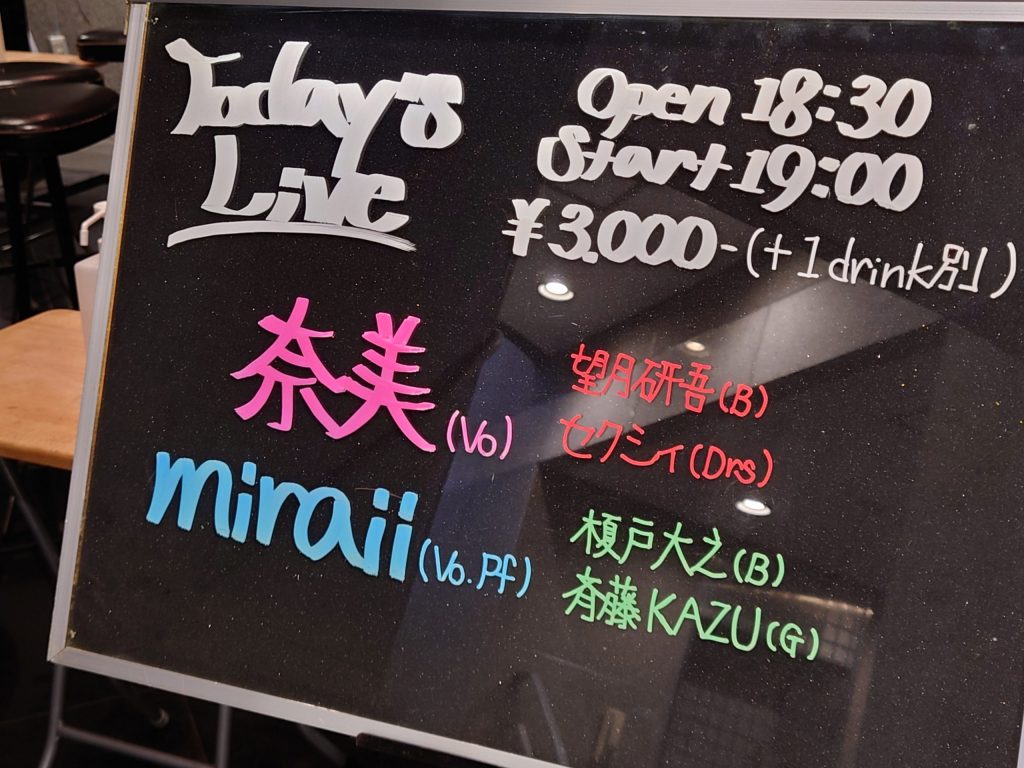 Today's
Live
Open 18:30
Start 19:00
¥3.000-(+1drink別)
奈美(Vo)
miraii(Vo.Pf)
望月研吾(B)
セクシィ(Drs)
榎戸大之(B)
斉藤KAZU(G)